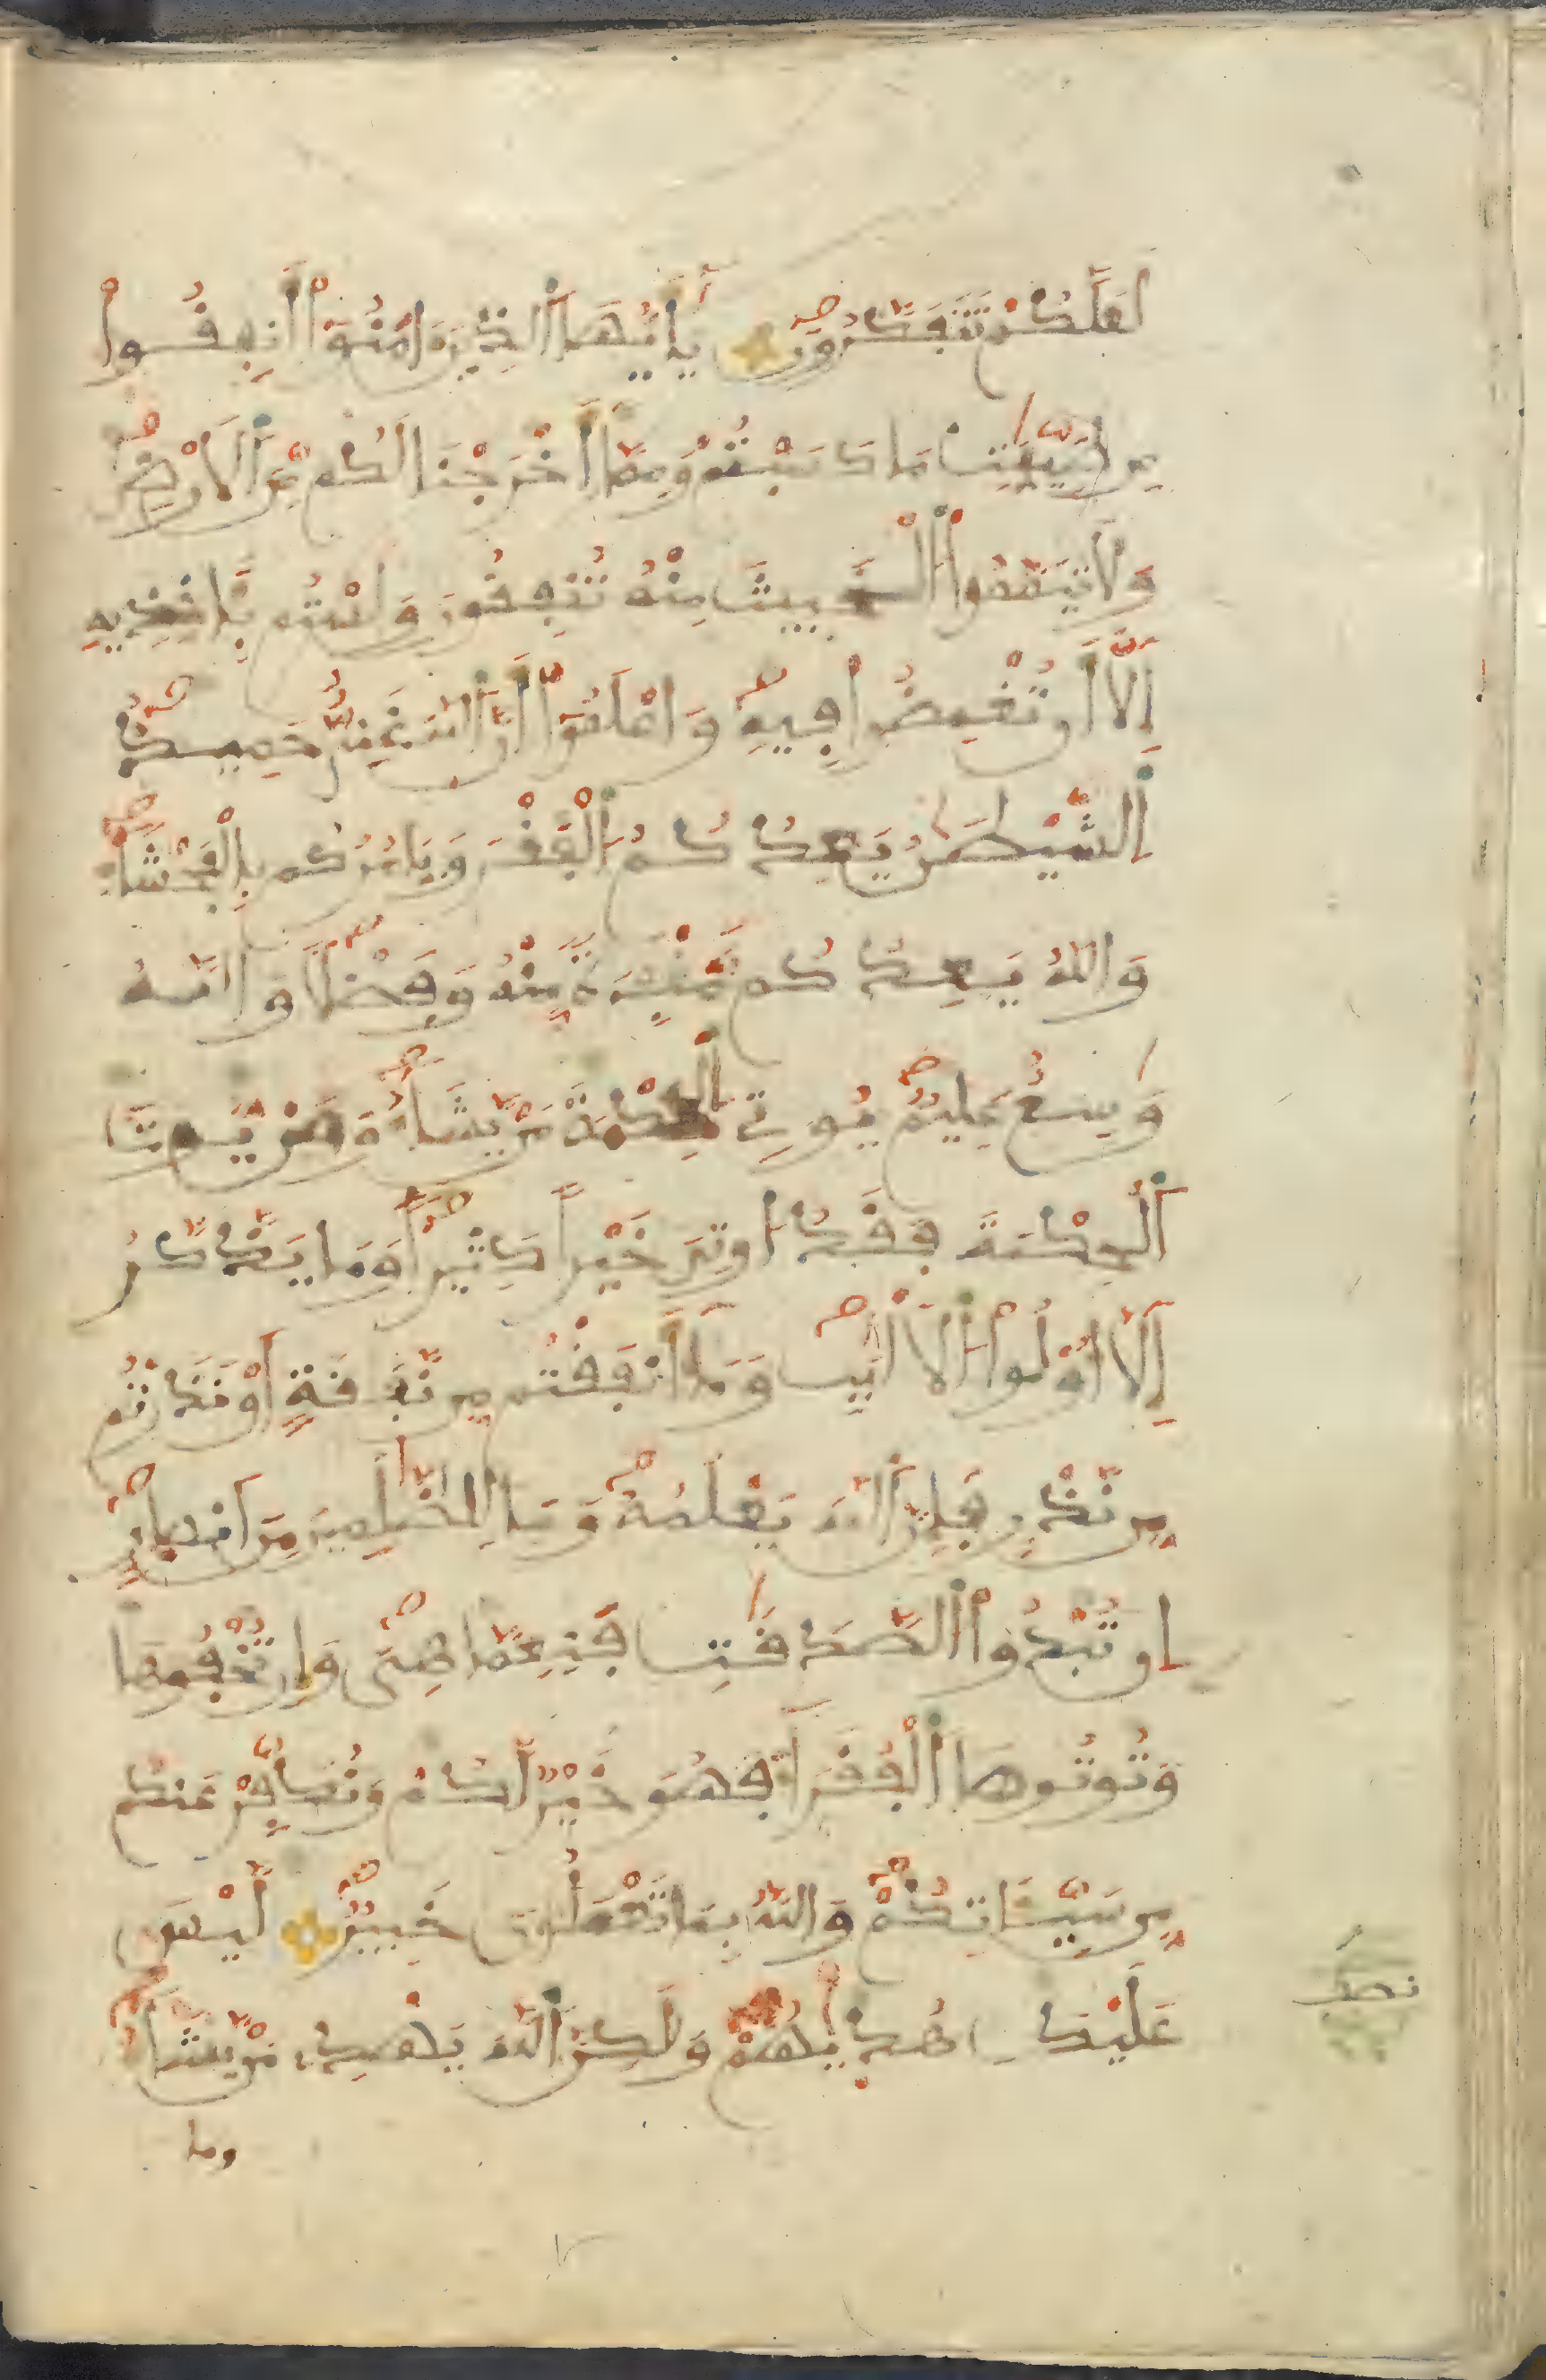 لَعَلَّكُمْ تَتَفَكَّرُونَ يَٰأَيُّهَا اَ۬لذِينَ ءَامَنُوٓاْ أَنفِقُواْ
مِن طَيِّبَٰتِ مَا كَسَبْتُمْ وَمِمَّآ أَخْرَجْنَا لَكُم مِّنَ اَ۬لَارْضِ
وَلَا تَيَمَّمُواْ اُ۬لْخَبِيثَ مِنْهُ تُنفِقُونَ وَلَسْتُم بِـَٔاخِذِيهِ
إِلَّآ أَن تُغْمِضُواْ فِيهِ وَاعْلَمُوٓاْ أَنَّ اَ۬للَّهَ غَنِيٌّ حَمِيدٌ
اِ۬لشَّيْطَٰنُ يَعِدُكُمُ اُ۬لْفَقْرَ وَيَامُرُكُم بِالْفَحْشَآءِ
وَاللَّهُ يَعِدُكُم مَّغْفِرَةً مِّنْهُ وَفَضْلًا وَاللَّهُ
وَٰسِعٌ عَلِيمٌ يُوتِي اِ۬لْحِكْمَةَ مَنْ يَّشَآءُ وَمَنْ يُّوتَ
اَ۬لْحِكْمَةَ فَقَدُ اوتِيَ خَيْرًا كَثِيرًا وَمَا يَذَّكَّرُ
إِلَّآ أُوْلُواْ اُ۬لَالْبَٰبِ وَمَآ أَنفَقْتُم مِّن نَّفَقَةٍ أَوْ نَذَرْتُم
مِّن نَّذْرٍ فَإِنَّ اَ۬للَّهَ يَعْلَمُهُ وَمَا لِلظَّٰلِمِينَ مِنَ انصَارٍ
إِن تُبْدُواْ اُ۬لصَّدَقَٰتِ فَنِعِمَّا هِيَ وَإِن تُخْفُوهَا
وَتُوتُوهَا اَ۬لْفُقَرَآءَ فَهُوَ خَيْرٌ لَّكُمْ وَنُكَفِّرْ عَنكُم
مِّن سَيِّـَٔاتِكُمْ وَاللَّهُ بِمَا تَعْمَلُونَ خَبِيرٌ لَّيْسَ
عَلَيْكَ هُدَىٰهُمْ وَلَٰكِنَّ اَ۬للَّهَ يَهْدِي مَنْ يَّشَآءُ
وما
نصف